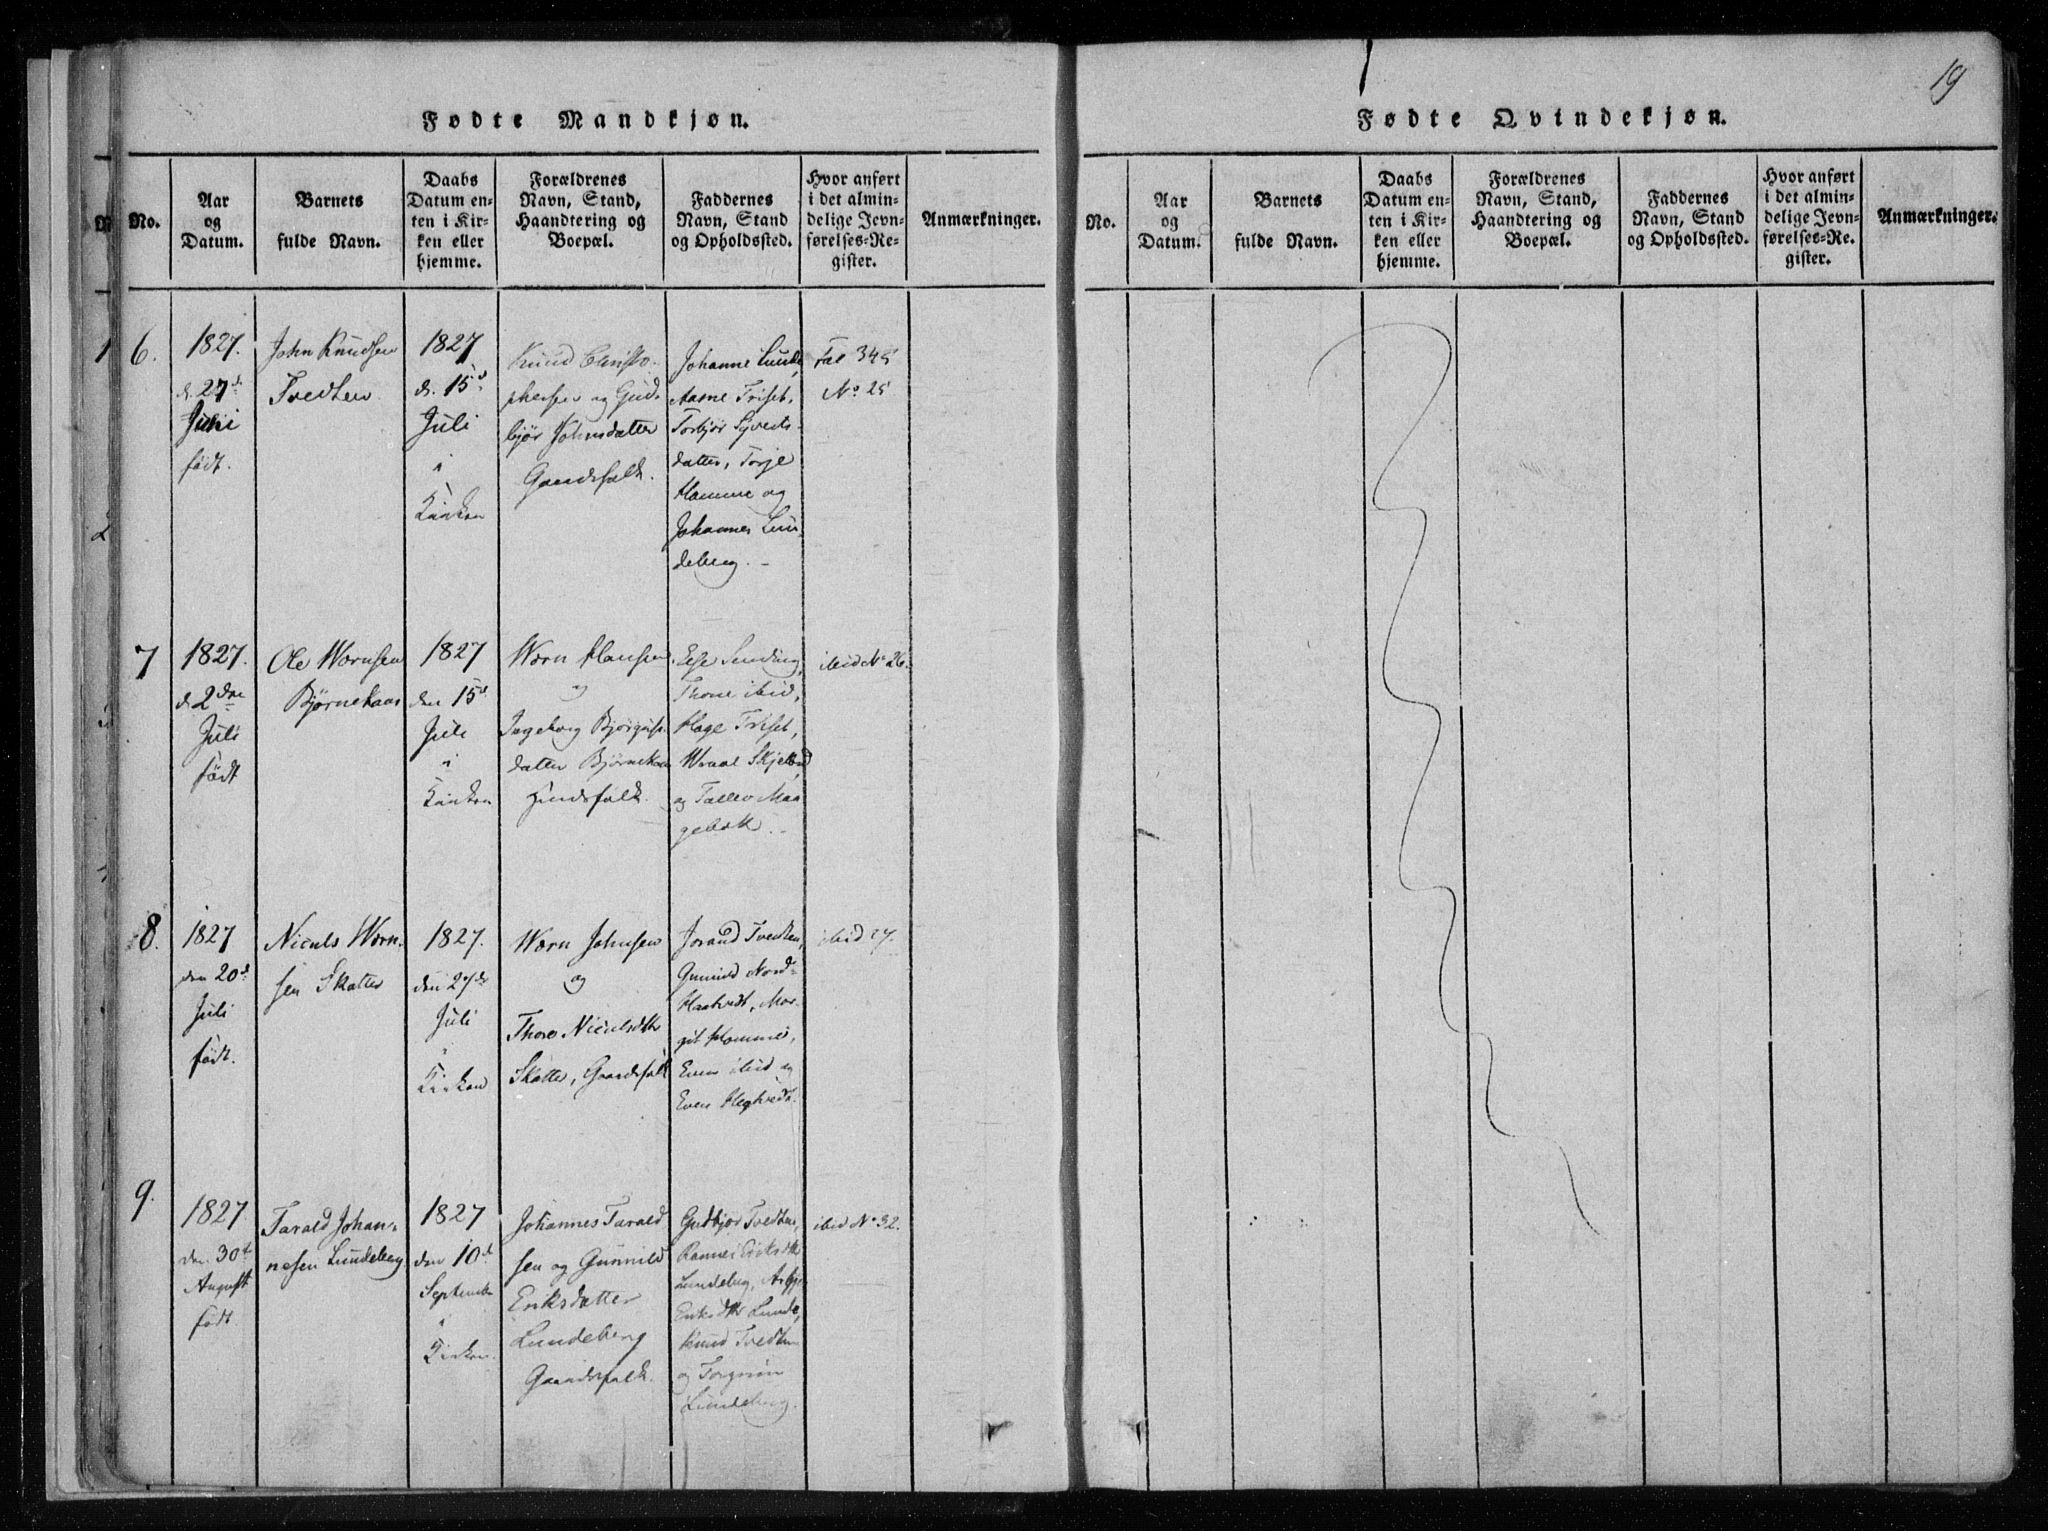 19
Fødte Mandkjøn.
No.
Aar
og
Datum.
Barnets
fulde Navn.
Daabs
Datum en-
ten i Kir-
ken eller
hjemme.
Forældrenes
Navn, Stand,
Haandtering og
Boepæl.
Faddernes
Navn, Stand
og Opholdssted.
Hvor anført
i det almin-
delige Jevn-
førelses-Re-
gister.
Anmærkninger.
6.
1827.
d. 27d
Juni
født.
John Knudsen
Tvedten
1827
d. 15d
Juli
i
Kirken
Knud Christo-
phersen og Gud-
bjør Johnsdatter
Gaardsfolk.
Johanne Lunde,
Aasne Triset,
Torbjør Syverts-
datter, Torje
Homme og
Johannes Lun-
deberg.
Fol 345
No 25
7
1827.
d 2den
Juli
født
Ole Wærnsen
Bjørnekaas
1827
den 15d
Juli
i
Kirken
Wærn Hansen
og
Ingeborg
datter
Else
Thone ibid,
Hage Triset,
Wraal
og Tallev
ibid No 26.
8.
1827
den 20d
Juli
født.
Niculs Wærn-
sen Skatter
1827.
den 27de
Juli
i
Kirken
Wærn Johnsen
og
Thore Niculsdtr
Skatter, Gaardsfolk
Jorand Tvedten,
Gunnild Nord-
Haatvedt, Mar-
git Homme,
Even ibid og
Even
ibid 27.
9.
1827
den 30t
August
født
Tarald Johan-
nesen Lundeberg
1827
den 10d
September
i
Kirken.
Johannes Tarald
sen og Gunnild
Eriksdatter
Lundeberg
Gaardsfolk.
Gudbjør Tvedten,
Rannei Eriksdtr
Lundeberg,
Eriksdtr Lunde,
Knud Tvedten
og
Lundeberg.
ibid No 32.
Fødte Qvindekjøn.
No.
Aar
og
Datum.
Barnets
fulde Navn.
Daabs
Datum en-
ten i Kir-
ken eller
hjemme.
Forældrenes
Navn, Stand,
Haandtering og
Boepæl.
Faddernes
Navn, Stand
og Opholdssted.
Hvor anført
i det almin-
delige Jevn-
førelses-Re.
gister.
Anmærkninger.